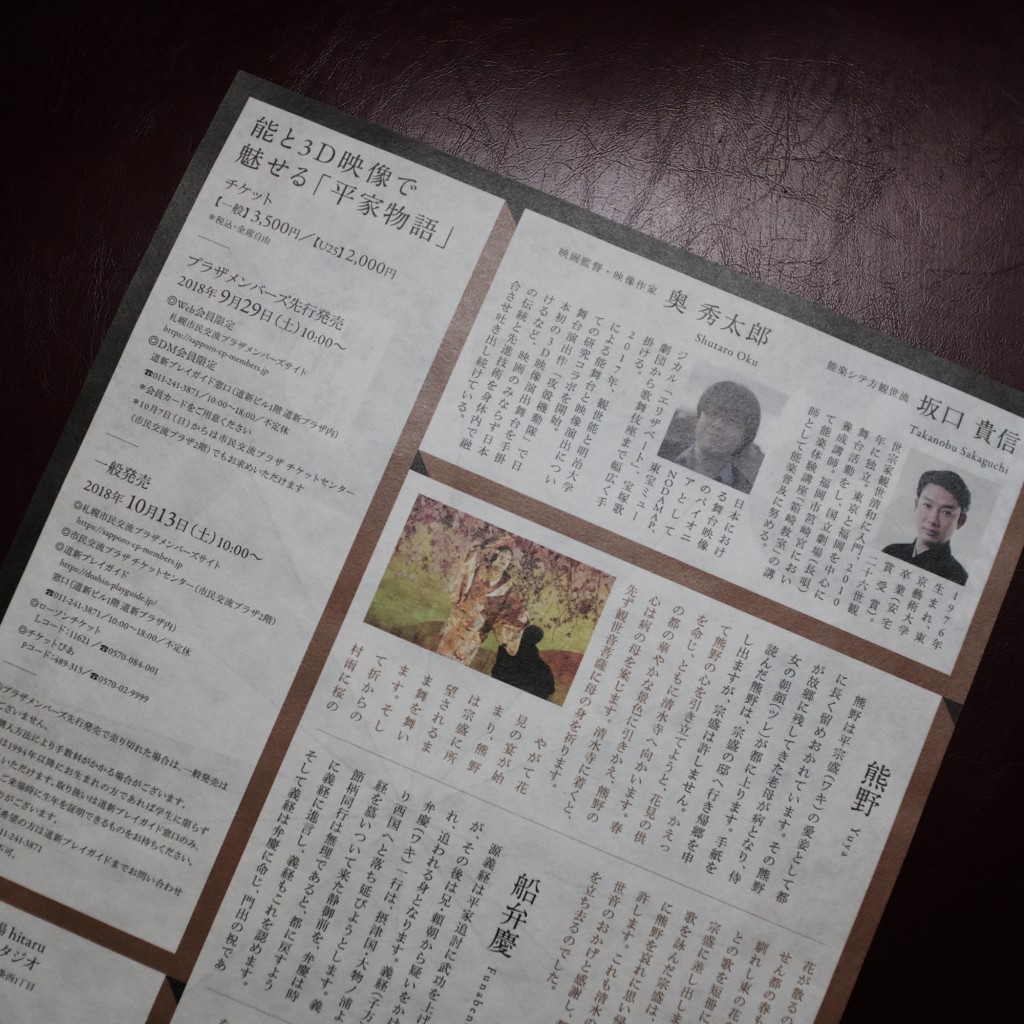 能と3D映像で
魅せる「平家物語」
チケット
【一般】3,500円／【U25】2,000円
＊税込・全席自由
プラザメンバーズ先行発売
2018年 9月29日（土）10:00～
◎Web会員限定
札幌市民交流プラザメンバーズサイト
https://sapporo-cp-members.jp
◎DM会員限定
道新プレイガイド窓口（道新ビル1階 道新プラザ内）
☎011-241-3871／10:00～18:00／不定休
＊会員カードをご用意ください
＊10月7日（日）からは市民交流プラザ チケットセンター
（市民交流プラザ2階）でもお求めいただけます
一般発売
2018年 10月13日（土）10:00～
◎札幌市民交流プラザメンバーズサイト
https://sapporo-cp-members.jp
◎市民交流プラザ チケットセンター（市民交流プラザ2階）
◎道新プレイガイド
https://doshin-playguide.jp/
窓口（道新ビル1階 道新プラザ内）
☎011-241-3871／10:00～18:00／不定休
◎ローソンチケット
Lコード:11621／☎0570-084-001
◎チケットぴあ
Pコード:489-315／☎0570-02-9999
プラザメンバーズ先行発売で売り切れた場合は、一般発売は
ございません。
購入方法により手数料がかかる場合がございます。
は1994年以降にお生まれの方であれば学生に限らず
いただけます。取り扱いは道新プレイガイド窓口のみ。
ご来場時に生年を証明できるものをお持ちください。
りがございます。
希望の方は道新プレイガイドまでお問い合わせ
11-241-3871
不可。
場 hitaru
タジオ
条西1丁目
能楽シテ方観世流 坂口 貴信
Takanobu Sakaguchi
1976年
生まれ。東
京藝術大学
卒業（安宅
賞受賞）。
二十六世観
世宗家観世清和に入門、2010
年に独立。東京と福岡を中心に
舞台活動をし、国立劇場（長唄）
養成講師、福岡市筥崎宮におい
て能楽体験講座（箱崎教室）の講
師として能楽普及に努める。
映画監督・映像作家 奥 秀太郎
Shutaro Oku
日本におけ
る舞台映像
のパイオニ
アとして
NODA MAP、
東宝ミュー
ジカル「エリザベート」、宝塚歌
劇団から歌舞伎座まで幅広く手
掛ける。
2017年、観世能と明治大学
による能舞台と映像演出につい
ての研究コラボを開始。日
本初の3D舞台演出作「攻殻機動隊」で日
ける など、映像演出舞台を手掛
の伝統と先進技術を身体内で融
合させ吐き出し続けている。
熊野 Yuya
熊野は平宗盛（ワキ）の愛妾として都
に長く留めおかれています。その熊野
が故郷に残してきた老母が病となり、侍
女の朝顔（ツレ）が都に上ります。手紙を
読んだ熊野は、宗盛の邸へ行き帰郷を申
し出ますが、宗盛は許しません。かえっ
て熊野の心を引き立てようと、花見の供
を命じ、ともに清水寺へ向かいます。春
の都の華やかな景色に引きかえ、熊野の
心は病の母を案じます。清水寺に着くと、
先ず観世音菩薩に母の身を祈ります。
やがて花
見の宴が始
まり、熊野
は宗盛に所
望されるま
ま舞を舞い
ます。そし
て折からの
村雨に桜の
花が散るの
せん都の春も
馴れし東の花
との歌を短冊に
宗盛に差し出しま
歌を詠んだ宗盛は、
に熊野を哀れに思い帰
許します。これも清水の
世音のおかげと感謝し、
を立ち去るのでした。
船弁慶 Funaben
源義経は平家追討に武功を上げ
が、その後は兄・頼朝から疑いをかけ
れ、追われる身となります。義経（子方）、
弁慶（ワキ）一行は、摂津国・大物ノ浦よ
り西国へと落ち延びようとします。義
経を慕いついて来た静御前を、弁慶は時
節柄同行は無理であると、都に戻すよう
に義経に進言し、義経もこれを認めます。
そして義経は弁慶に命じ、門出の祝であ